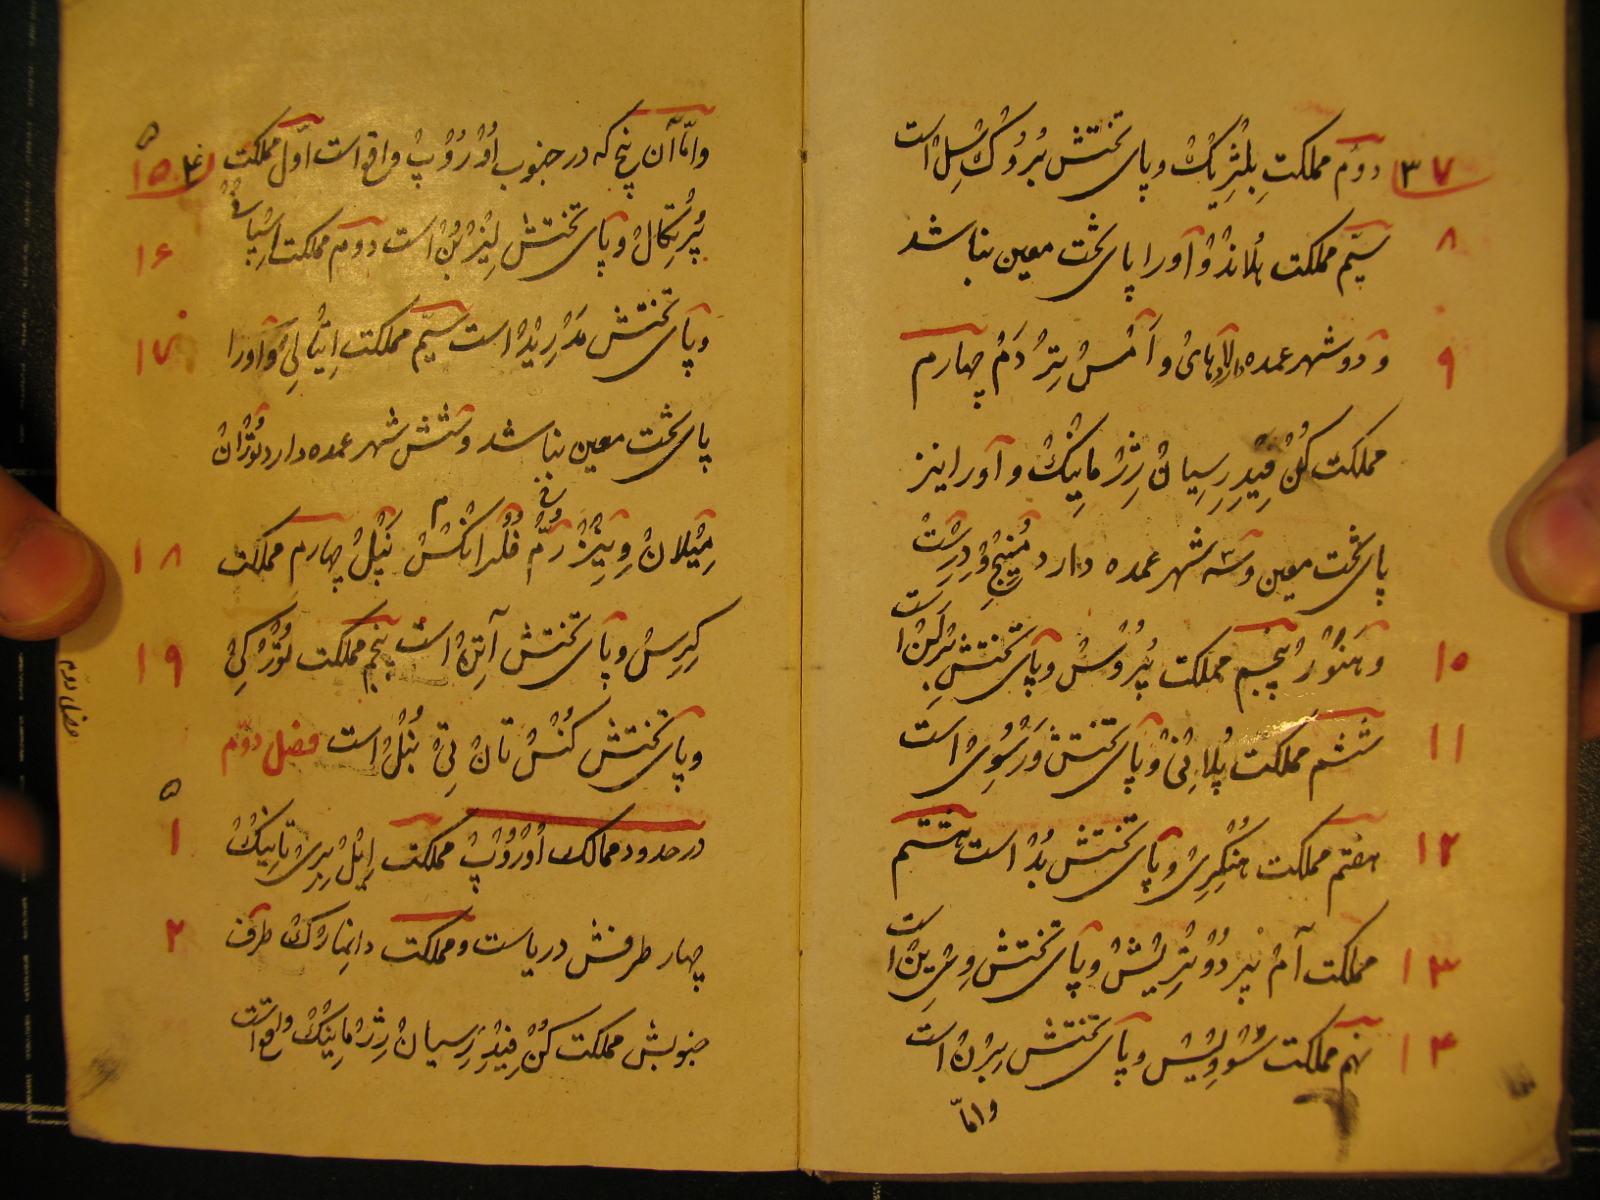 ۳۷ دوّم مملکتِ بلژیکْ و پای تختش بُرُوکْسِلْ است
۸ سیّم مملکت هُلاندْ وْ آورا پای تخت معین نباشد
۹ و دو شهر عمده دارد لاهایْ و آمْسْتِرْدَمْ چهارم
مملکت کُنْفِیْدِرِسِیانْ ژِرْمانِیْکْ و آورا نیز
پای تخت معین و سه شهر عمده دارد مُنِیْخْ وْ دِرِسْتْ
۱۰ و هَنُوْرْ پنجم مملکت پُرُوسْ و پای تختش بِرْلَنْ است
۱۱ ششم مملکت پُلانیْ و پای تختش وَرْسُوِیْ است
۱۲ هفتم مملکت هنْکِرِیْ و پای تختش بُدْ است هشتم
۱۳ مملکت آمْپِیْر دُوْتْرِیْشْ و پای تختش وِیِنْ است
۱۴ نهم مملکت سُوْوِیْسْ و پای تختش بِرْنْ است
وامّا
۱۵ ۴ وامّا آن پنج که در جنوب اُوْرُوْپْ واقع است اوّل مملکت ۵
۱۶ پُرْتِکالْ و پای تختش لِیْزْبُنْ است دوم مملکت اِسْپانی
۱۷ و پای تختش مَدْرِیْدْ است سیّم مملکت اِیْتالِیْ وْ آورا
پای تخت معین نباشد و شش شهر عمده دارد تُوْرانْ
۱۸ مِیْلانْ وِنِیْزْ رُمْ فْلُرانْسْ نَپْلْ چهارم مملکت
۱۹ کِرِسْ و پای تختش آتِنْ است پنجم مملکت تُوْرْکِیْ
و پای تختش کُنْسْتانْتِیْنُپْلْ است فصل دوّم
فصل دوم
۵
۱ در حدود ممالک اُوْرُوْپْ مملکت اِیْلْ بِرِیْتانِیْکْ
۲ چهار طرفش دریاست و مملکت دانِمارْکْ طرف
جنوبش مملکت کُنْفِیْدِرِسیانْ ژِرْمانِیْکْ واقع است